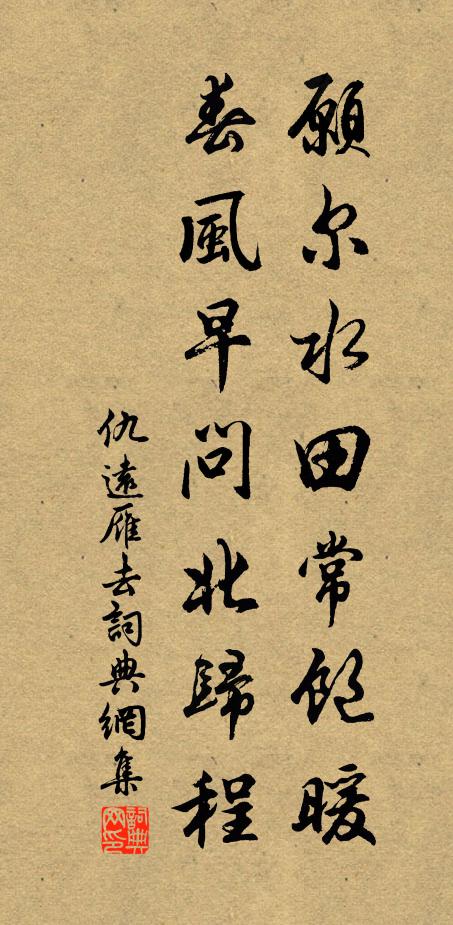 願尔水田常飽暖
春風早問北歸程
仇遠雁去詞典網集
詞典网印